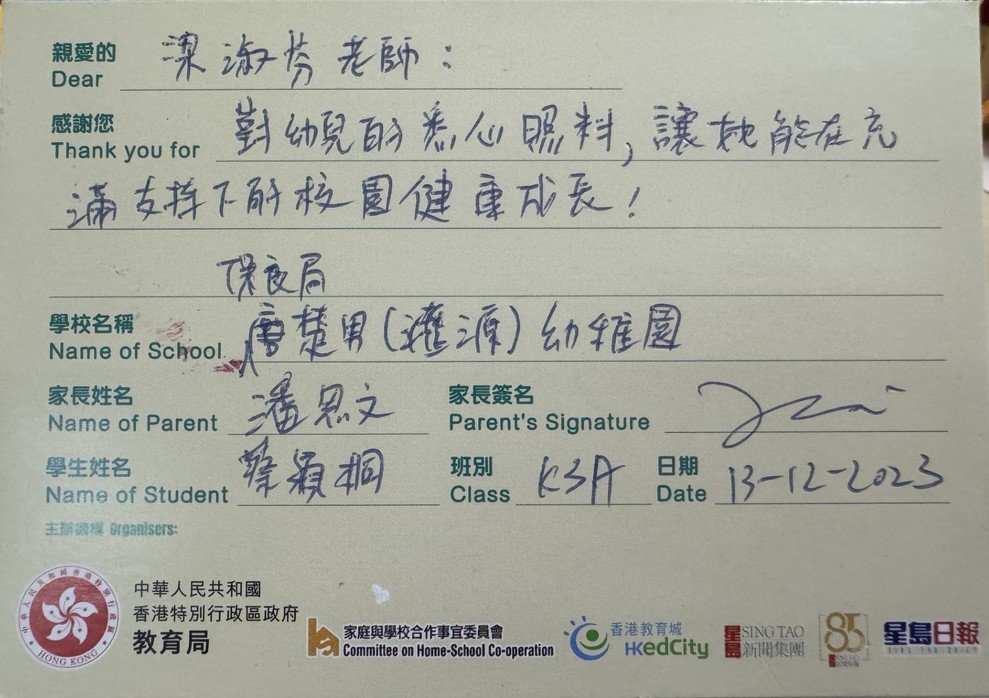 親愛的 梁淑芬老師：
Dear
感謝您 對幼兒的悉心照料，讓她能在充
Thank you for
滿支持下的校園健康成長！
保良局
學校名稱 唐楚男(滙源)幼稚園
Name of School
家長姓名 潘恩文 家長簽名
Name of Parent Parent's Signature
學生姓名 蔡穎桐 班別 K3A 日期 13-12-2023
Name of Student Class Date
主辦機構 Organisers:
中華人民共和國
香港特別行政區政府
教育局
中華人民共和國香港特別行政區
HONG KONG
家庭與學校合作事宜委員會
Committee on Home-School Co-operation
香港教育城
HKedCity
星島 SING TAO
新聞集團
85
星島日報
SING TAO DAILY